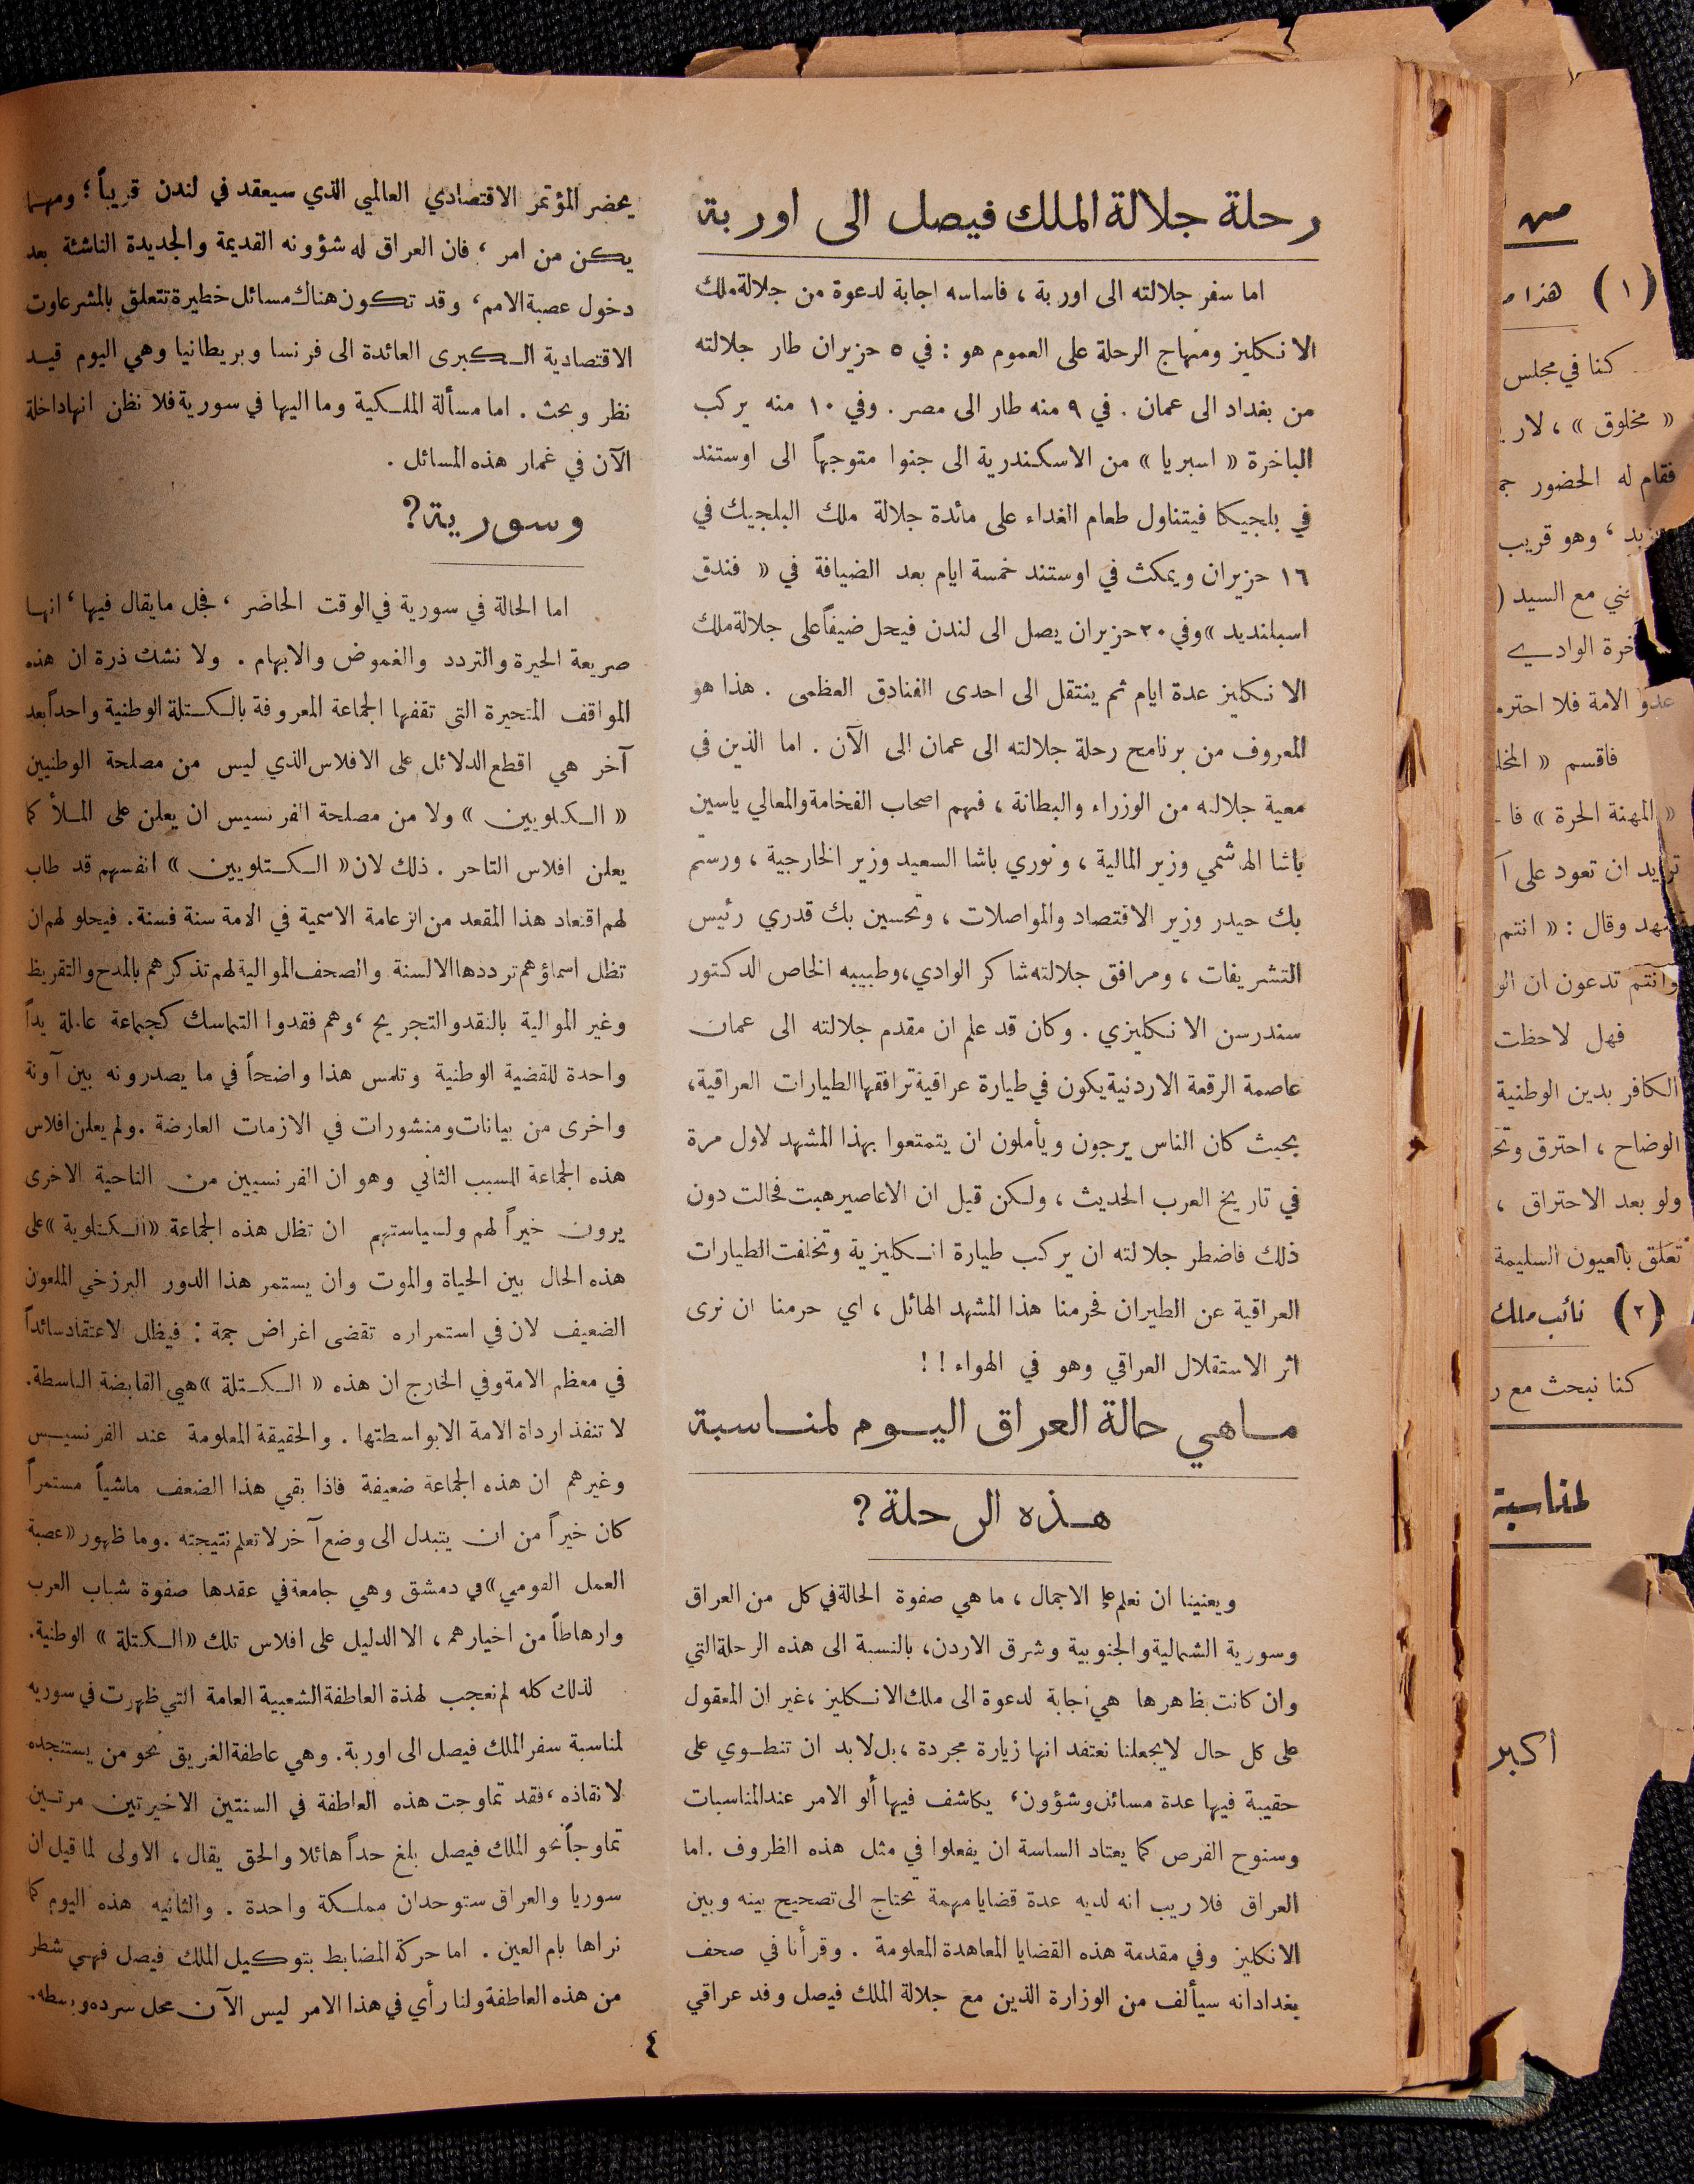 رحلة جلالة الملك فيصل الى اوربة
اما سفر جلالته الى اوربة ، فاساسه اجابة لدعوة من جلالة ملك
الانكليز ومنهاج الرحلة على العموم هو : في ٥ حزيران طار جلالته
من بغداد الى عمان . في ٩ منه طار الى مصر . وفي ١٠ منه يركب
الباخرة « اسبريا » من الاسكندرية الى جنوا متوجهاً الى اوستند
في بلجيكا فيتناول طعام الغداء على مائدة جلالة ملك البلجيك في
١٦ حزيران ويمكث في اوستند خمسة ايام بعد الضيافة في « فندق
اسبلنديد » وفي ٢٠ حزيران يصل الى لندن فيحل ضيفاً على جلالة ملك
الانكليز عدة ايام ثم ينتقل الى احدى الفنادق العظمى . هذا هو
المعروف من برنامج رحلة جلالته الى عمان الى الآن . اما الذين في
معية جلالته من الوزراء والبطانة ، فهم اصحاب الفخامة والمعالي ياسين
باشا الهاشمي وزير المالية ، ونوري باشا السعيد وزير الخارجية ، ورستم
بك حيدر وزير الاقتصاد والمواصلات ، وتحسين بك قدري رئيس
التشريفات ، ومرافق جلالته شاكر الوادي ، وطبيبه الخاص الدكتور
سندرسن الانكليزي . وكان قد علم ان مقدم جلالته الى عمان
عاصمة الرقعة الاردنية يكون في طيارة عراقية ترافقها الطيارات العراقية ،
بحيث كان الناس يرجون ويأملون ان يتمتعوا بهذا المشهد لاول مرة
في تاريخ العرب الحديث ، ولكن قيل ان الاعاصير هبت فحالت دون
ذلك فاضطر جلالته ان يركب طيارة انكليزية وتخلفت الطيارات
العراقية عن الطيران فحرمنا هذا المشهد الهائل ، اي حرمنا ان نرى
اثر الاستقلال العراقي وهو في الهواء ! !
ماهي حالة العراق اليوم لمناسبة
هذه الرحلة ؟
ويعنينا ان نعلم على الاجمال ، ما هي صفوة الحالة في كل من العراق
وسورية الشمالية والجنوبية وشرق الاردن ، بالنسبة الى هذه الرحلة التي
وان كانت بظاهرها هي اجابة لدعوة الى ملك الانكليز ، غير ان المعقول
على كل حال لا يجعلنا نعتقد انها زيارة مجردة ، بل لا بد ان تنطوي على
حقيبة فيها عدة مسائل وشؤون ، يكاشف فيها ألو الامر عند المناسبات
وسنوح الفرص كما يعتاد الساسة ان يفعلوا في مثل هذه الظروف . اما
العراق فلا ريب انه لديه عدة قضايا مهمة تحتاج الى تصحيح بينه وبين
الانكليز وفي مقدمة هذه القضايا المعاهدة المعلومة . وقرأنا في صحف
بغداد انه سيألف من الوزارة الذين مع جلالة الملك فيصل وفد عراقي
يحضر المؤتمر الاقتصادي العالمي الذي سيعقد في لندن قريباً ؛ ومهما
يكن من امر ، فان العراق له شؤونه القديمة والجديدة الناشئة بعد
دخول عصبة الامم ، وقد تكون هناك مسائل خطيرة تتعلق بالمشروعات
الاقتصادية الكبرى العائدة الى فرنسا وبريطانيا وهي اليوم قيد
نظر وبحث . اما مسألة الملكية وما اليها في سورية فلا نظن انها داخلة
الآن في غمار هذه المسائل .
وسورية ؟
اما الحالة في سورية في الوقت الحاضر ، فجل ما يقال فيها ، انها
صريعة الحيرة والتردد والغموض والابهام . ولا نشك ذرة ان هذه
المواقف المتحيرة التي تقفها الجماعة المعروفة بالكتلة الوطنية واحداً بعد
آخر هي اقطع الدلائل على الافلاس الذي ليس من مصلحة الوطنيين
« الكتلويين » ولا من مصلحة الفرنسيس ان يعلن على الملأ كما
يعلن افلاس التاجر . ذلك لان « الكتلويين » انفسهم قد طاب
لهم اقتعاد هذا المقعد من الزعامة الاسمية في الامة سنة فسنة . فيحلو لهم ان
تظل اسماؤهم ترددها الالسنة والصحف الموالية لهم تذكرهم بالمدح والتقريظ
وغير الموالية بالنقد والتجريح ، وهم فقدوا التماسك كجماعة عاملة يداً
واحدة للقضية الوطنية وتلمس هذا واضحاً في ما يصدرونه بين آونة
واخرى من بيانات ومنشورات في الازمات العارضة . ولم يعلن افلاس
هذه الجماعة للسبب الثاني وهو ان الفرنسيين من الناحية الاخرى
يرون خيراً لهم ولسياستهم ان تظل هذه الجماعة « الكتلوية » على
هذه الحال بين الحياة والموت وان يستمر هذا الدور البرزخي الملعون
الضعيف لان في استمراره تقضى اغراض جمة : فيظل الاعتقاد سائداً
في معظم الامة وفي الخارج ان هذه « الكتلة » هي القابضة الباسطة .
لا تنفذ ارداة الامة الا بواسطتها . والحقيقة المعلومة عند الفرنسيس
وغيرهم ان هذه الجماعة ضعيفة فاذا بقي هذا الضعف ماشياً مستمراً
كان خيراً من ان يتبدل الى وضع آخر لا تعلم نتيجته . وما ظهور « عصبة
العمل القومي » في دمشق وهي جامعة في عقدها صفوة شباب العرب
وارهاطاً من اخيارهم ، الا الدليل على افلاس تلك « الكتلة » الوطنية .
لذلك كله لم نعجب لهذة العاطفة الشعبية العامة التي ظهرت في سوريه
لمناسبة سفر الملك فيصل الى اوربة . وهي عاطفة الغريق نحو من يستنجده
لانقاذه ، فقد تماوجت هذه العاطفة في السنتين الاخيرتين مرتين
تماوجاً نحو الملك فيصل بلغ حداً هائلا والحق يقال ، الاولى لما قيل ان
سوريا والعراق ستوحدان مملكة واحدة . والثانيه هذه اليوم كما
نراها بام العين . اما حركة المضابط بتوكيل الملك فيصل فهي شطر
من هذه العاطفة ولنا رأي في هذا الامر ليس الآن محل سرده وبسطه .
٤
من
( ١ ) هذا
كنا في مجلس
« مخلوق » ،
فقام له الحضور
، وهو قريب
مع السيد (
الوادي
عدو الامة فلا
فاقسم «
« المهنة الحرة »
ان تعود على
وقال : « انتم
وانتم تدعون ان
فهل لاحظت
الكافر بدين الوطنية
الوضاح ، احترق
ولو بعد الاحتراق ،
تعلق بالعيون السليمة
( ٢ ) نائب ملك
كنا نبحث مع
لمناسبة
اكبر